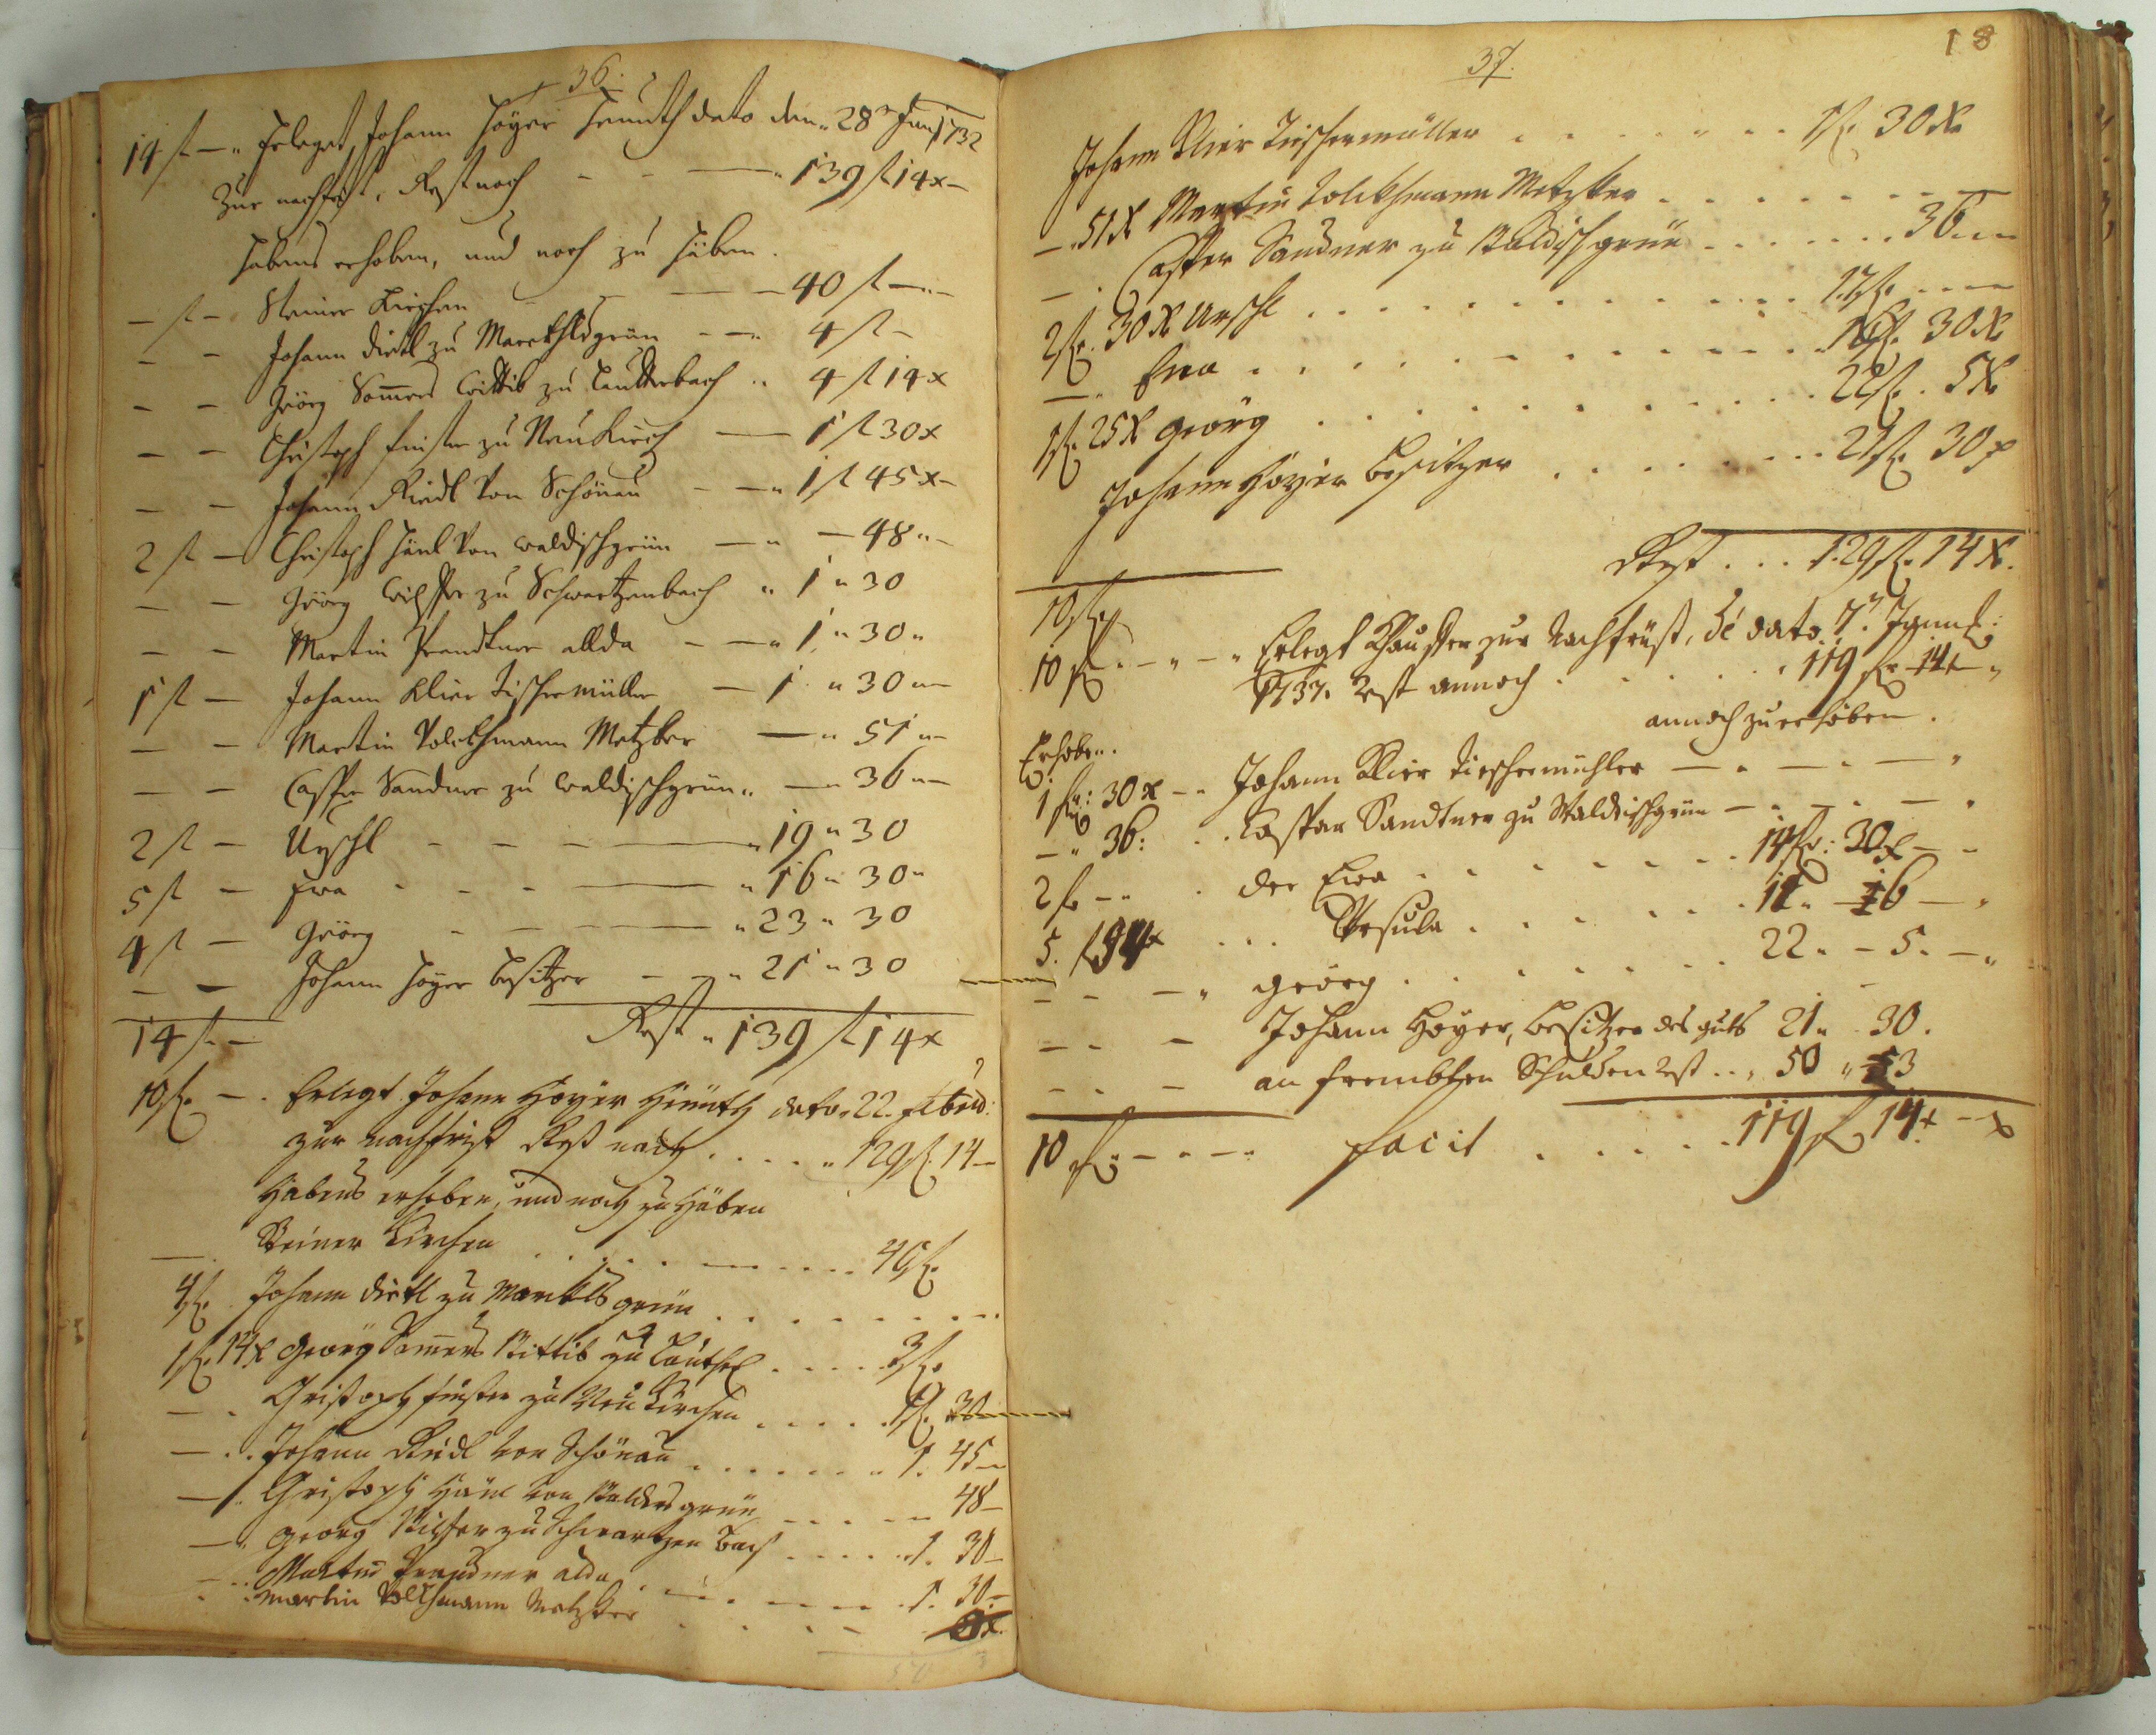 36.
14 fl — Erlegt Johann Höyer heünth dato den 28 Jung 1732
Zur nachfrist, Rest noch - - — 139 fl 14 x —
habens erhoben, und noch zu häben.
— fl — Steiner Kirchen — — 40 fl —
— — Johann Dietl zu Marckhlsgrün — — 4 fl —
— — Geörg Som̄ers Wittib zu Lautterbach 4 fl 14 x
— — Christoph finster zu NeuKirch — 1 fl 30 x
— — Johann Riedl Von Schönau — — 1 fl 45 x —
2 fl — Christoph Hänl Von Waldischgrün — — 48 —
— — Geörg zu Schwartzenbach 1 " 30
— — Martin Prandtner allda — — 1 " 30 "
1 fl — Johann Klier Tischermüller — 1 " 30 —
— — Martin Volckhmann Metzker — " 51 —
— — Caspar Sandner zu Waldischgrün " — 36 —
2 fl — Urschl - - - — 19 " 30
5 fl — Eva - - - — " 16 " 30 "
4 fl — Geörg - - — " 23 " 30
— — Johann Höyer besitzer - - " 21 " 30
14 fl — Rest " 139 fl 14 x
10 fl. — . Erlegt Johann Höyer Heünth dato 22.
zur nachfrist Rest noch . . . . " 129 fl. 14 —
Habens erhoben, und noch zu Häben
— Steiner Kirchen . . . . . . 40 fl.
4 fl. Johann Dietl zu Marckls grün . . . . . .
1 fl. 14 x Georg Som̄ers Wittib zu . . . . 3 fl.
— . Christoph finster zu Neu Kirchen . . . . . 1 fl. 30
— . . Johann Riedl von Schönau . . . . . . 1. 45 —
— . Christoph Hänl von Waldisgrün . . . . . 48 —
— . Georg zu Schwartzen bach . . . . . 1. 30 —
— . . Martin Prandner alda . . . . . 1. 30 —
. . Martin Volckhmann Metzker . . . . 51 x.
37.
18
Johann Klier Tischermüller . . . . . . . 1 fl. 30 x
— . 51 x Martin Volckhmann Metzker . . . . . . —
— . Casper Sandner zu Waldischgrün . . . . . . . 36 —
2 fl. 30 x Urschl . . . . . . . . . . . . 17 fl. — —
— " Eva . . . . . . . . . . . 16 fl. 30 x
1 fl. 25 x Geörg . . . . . . . . . . . . 22 fl. 5 x
Johann Höyer besitzer . . . . . . . . 21 fl. 30 x
Rest . . . 129 fl. 14 x.
10 fl.
10 fl . — " — " Erlegt zur Nachfrüst, de dato 7. Januar:
1737. Rest annoch . . . . . . 119 fl 14 x — "
Erhoben. annoch zu erhöben.
1 fl : 30 x — " Johann Klier Tischermühler — . — . — "
— " 36 : . . Caspar Sandtner zu Waldischgrün — . — . — "
2 fl — " . der Eva . . . . . . . . 14 fl : 30 x — —
5. fl 54 x . . . Ursula . . . . . . 11 " — 6 — "
— — — " Georg . . . . . . . . 22 . — 5 . — "
— — — Johann Höyer, besitzer des guts 21 " 30 .
— . — an frembten Schulden Rest . . " 50 " 53
10 fl " — " — " facit . . . . . . 119 fl 14 x — x